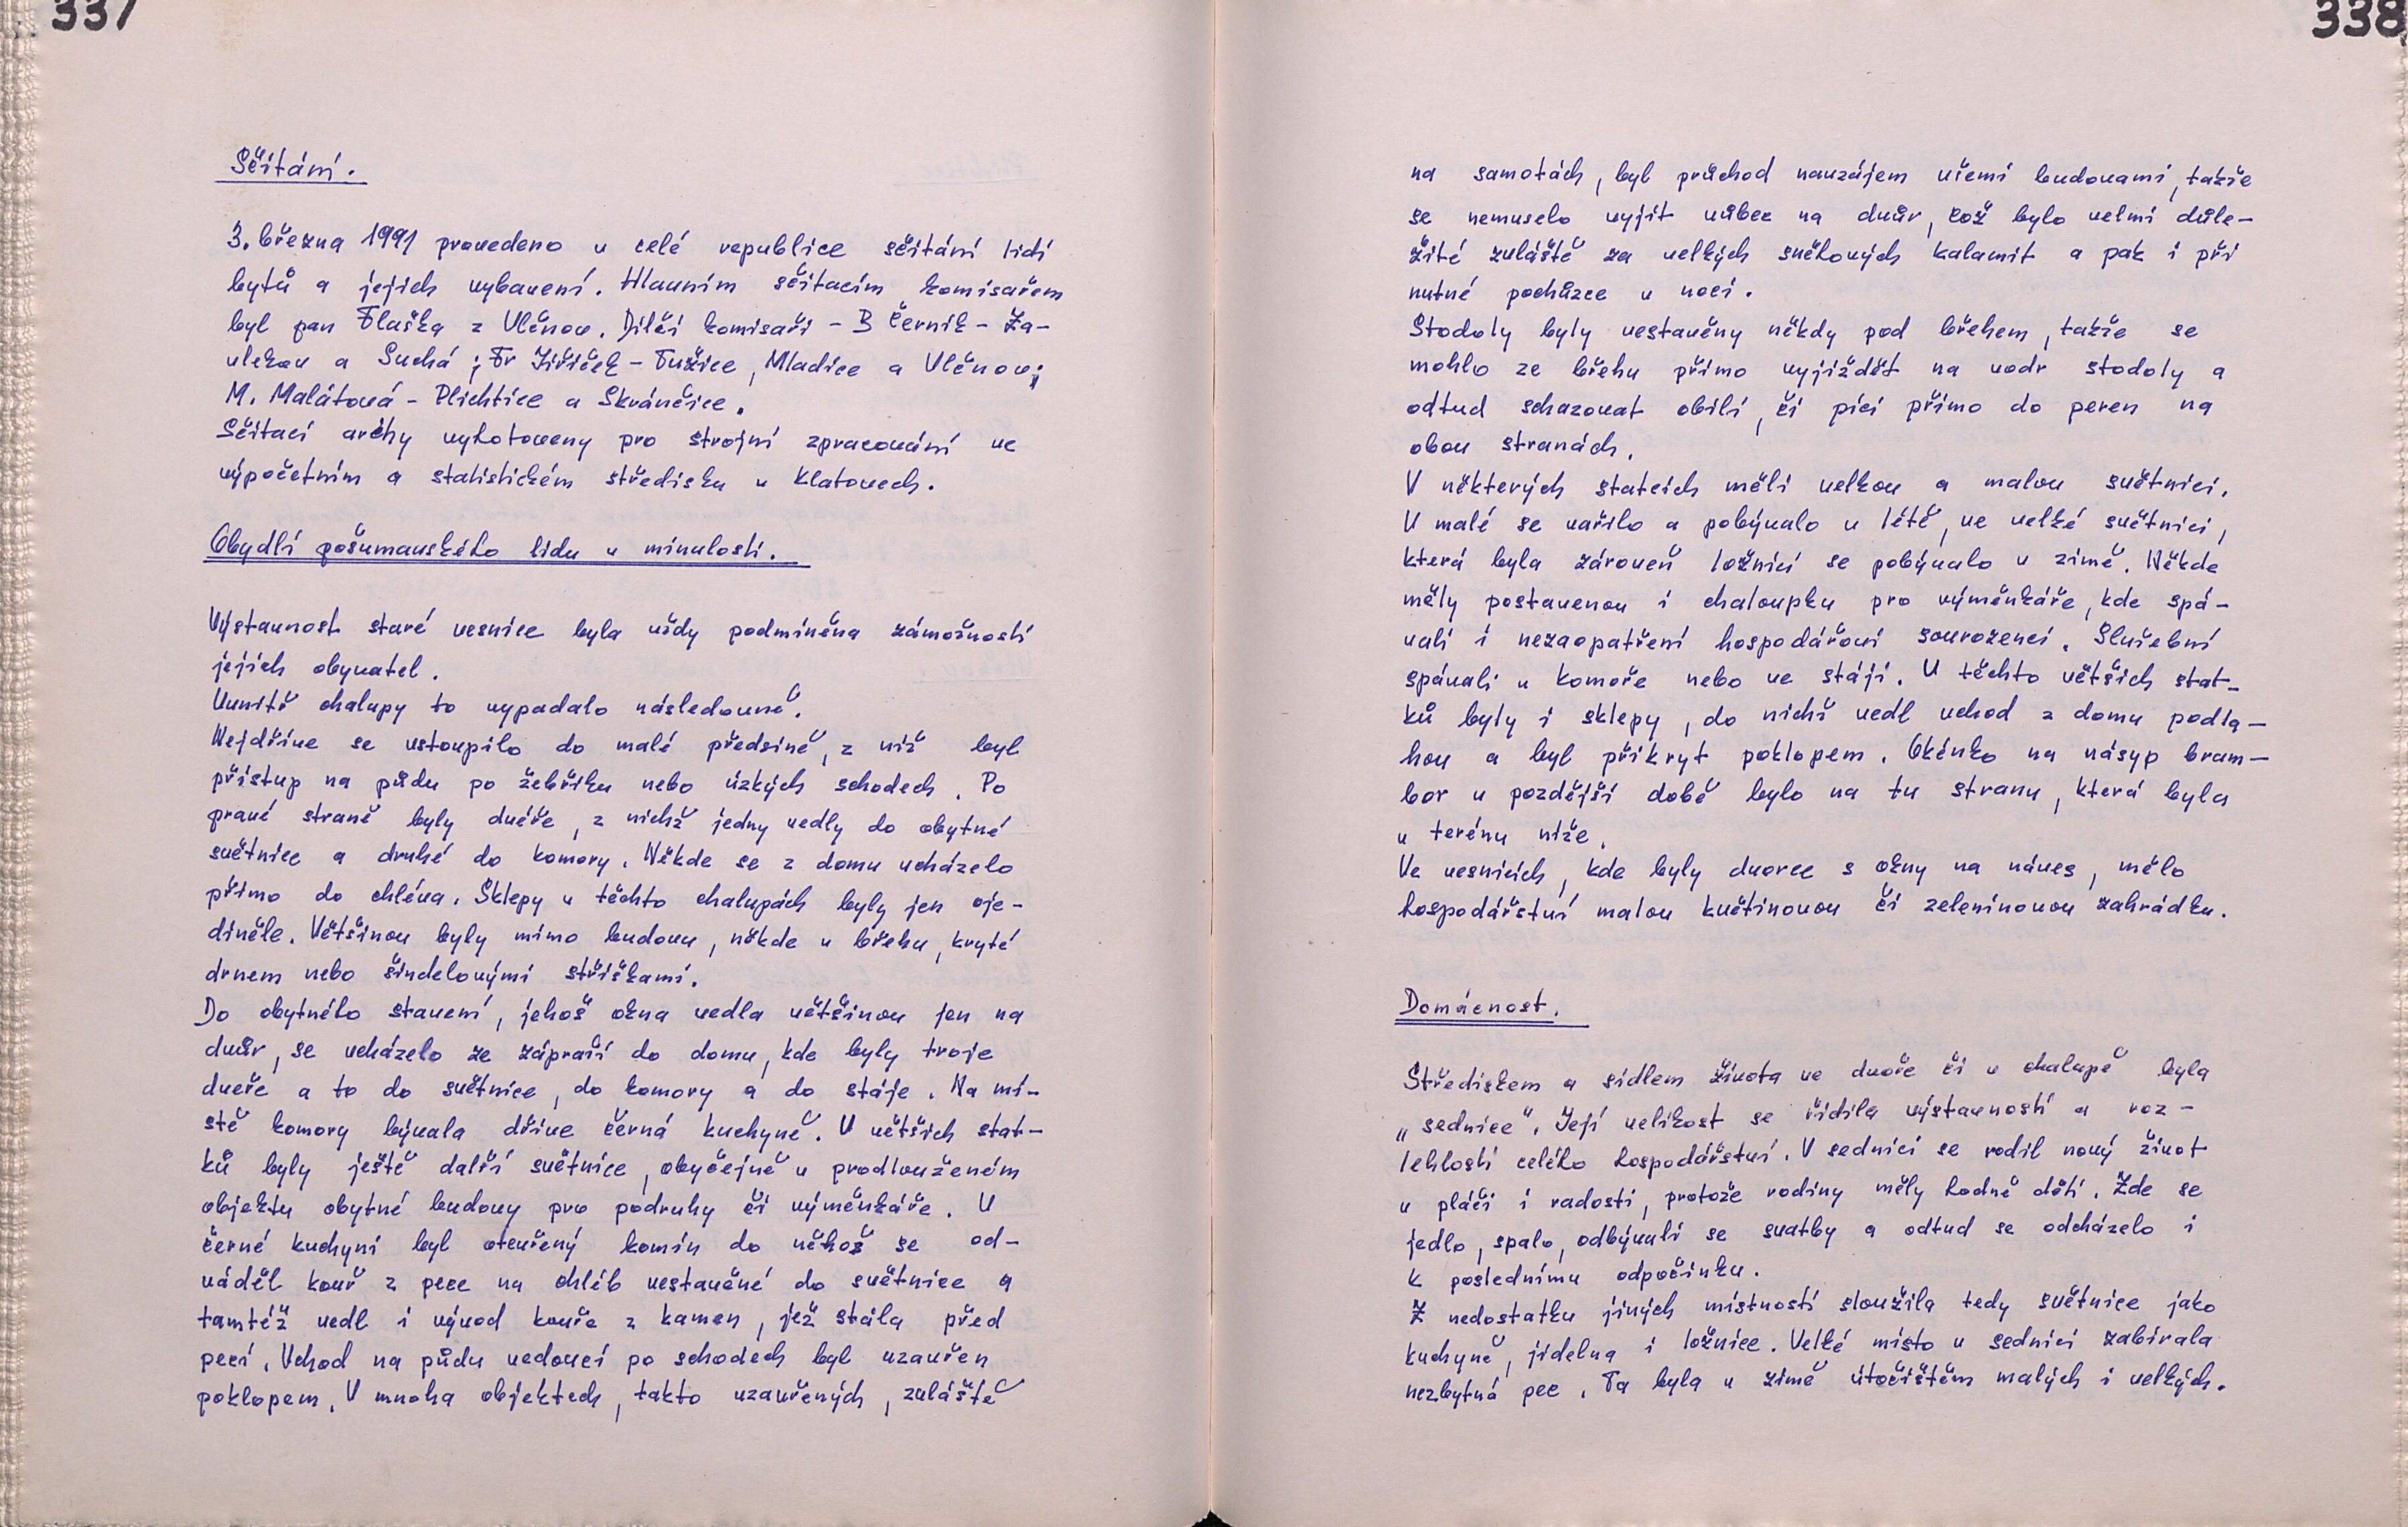 337
Sčítání.
3. března 1991 provedeno v celé republice sčítání lidí
bytů a jejich vybavení. Hlavním sčítacím komisařem
byl pan Flaška z Vlčnov. Dílčí komisaři - B Černík - Za-
vlekov a Suchá; Fr Jiřiček - Tužice, Mladice a Vlčnov;
M. Malátová - Plichtice a Skránčice.
Sčítací archy vyhotoveny pro strojní zpracování ve
výpočetním a statistickém středisku v Klatovech.
Obydlí pošumavského lidu v minulosti.
Výstavnost staré vesnice byla vždy podmíněna zámožností
jejich obyvatel.
Uvnitř chalupy to vypadalo následovně.
Nejdříve se vstoupilo do malé předsíně, z níž byl
přístup na půdu po žebříku nebo úzkých schodech. Po
pravé straně byly dvéře, z nichž jedny vedly do obytné
světnice a druhé do komory. Někde se z domu vcházelo
přímo do chléva. Sklepy v těchto chalupách byly jen oje-
diněle. Většinou byly mimo budovu, někde v břehu, kryté
drnem nebo šindelovými stříškami.
Do obytného stavení, jehož okna vedla většinou jen na
dvůr, se vcházelo ze zápraží do domu, kde byly troje
dveře a to do světnice, do komory a do stáje. Na mí-
stě komory bývala dříve černá kuchyně. U větších stat-
ků byly ještě další světnice, obyčejně v prodlouženém
objektu obytné budovy pro podruhy či výměnkáře. V
černé kuchyni byl otevřený komín do něhož se od-
váděl kouř z pece na chléb vestavěné do světnice a
tamtéž vedl i vývod kouře z kamen, jež stála před
pecí. Vchod na půdu vedoucí po schodech byl uzavřen
poklopem. V mnoha objektech, takto uzavřených, zvláště
338
na samotách, byl průchod navzájem všemi budovami, takže
se nemuselo vyjít vůbec na dvůr, což bylo velmi důle-
žité zvláště za velkých sněhových kalamit a pak i při
nutné pochůzce v noci.
Stodoly byly vestavěny někdy pod břehem, takže se
mohlo ze břehu přímo vyjíždět na vodr stodoly a
odtud schazovat obilí, či píci přímo do peren na
obou stranách.
V některých statcích měli velkou a malou světnici.
V malé se vařilo a pobývalo v létě, ve velké světnici,
která byla zároveň ložnicí se pobývalo v zimě. Někde
měly postavenou i chaloupku pro výměnkáře, kde spá-
vali i nezaopatření hospodářovi sourozenci. Služební
spávali v komoře nebo ve stáji. U těchto větších stat-
ků byly i sklepy, do nichž vedl vchod z domu podla-
hou a byl přikryt poklopem. Okénko na násyp bram-
bor v pozdější době bylo na tu stranu, která byla
v terénu níže.
Ve vesnicích, kde byly dvorce s okny na náves, mělo
hospodářství malou květinovou či zeleninovou zahrádku.
Domácnost.
Střediskem a sídlem života ve dvoře či v chalupě byla
„sednice". Její velikost se řídila výstavností a roz-
lehlostí celého hospodářství. V sednici se rodil nový život
v pláči i radosti, protože rodiny měly hodně dětí. Zde se
jedlo, spalo, odbývali se svatby a odtud se odcházelo i
k poslednímu odpočinku.
Z nedostatku jiných místností sloužila tedy světnice jako
kuchyně, jídelna i ložnice. Velké místo v sednici zabírala
nezbytná pec. Ta byla v zimě útočištěm malých i velkých.